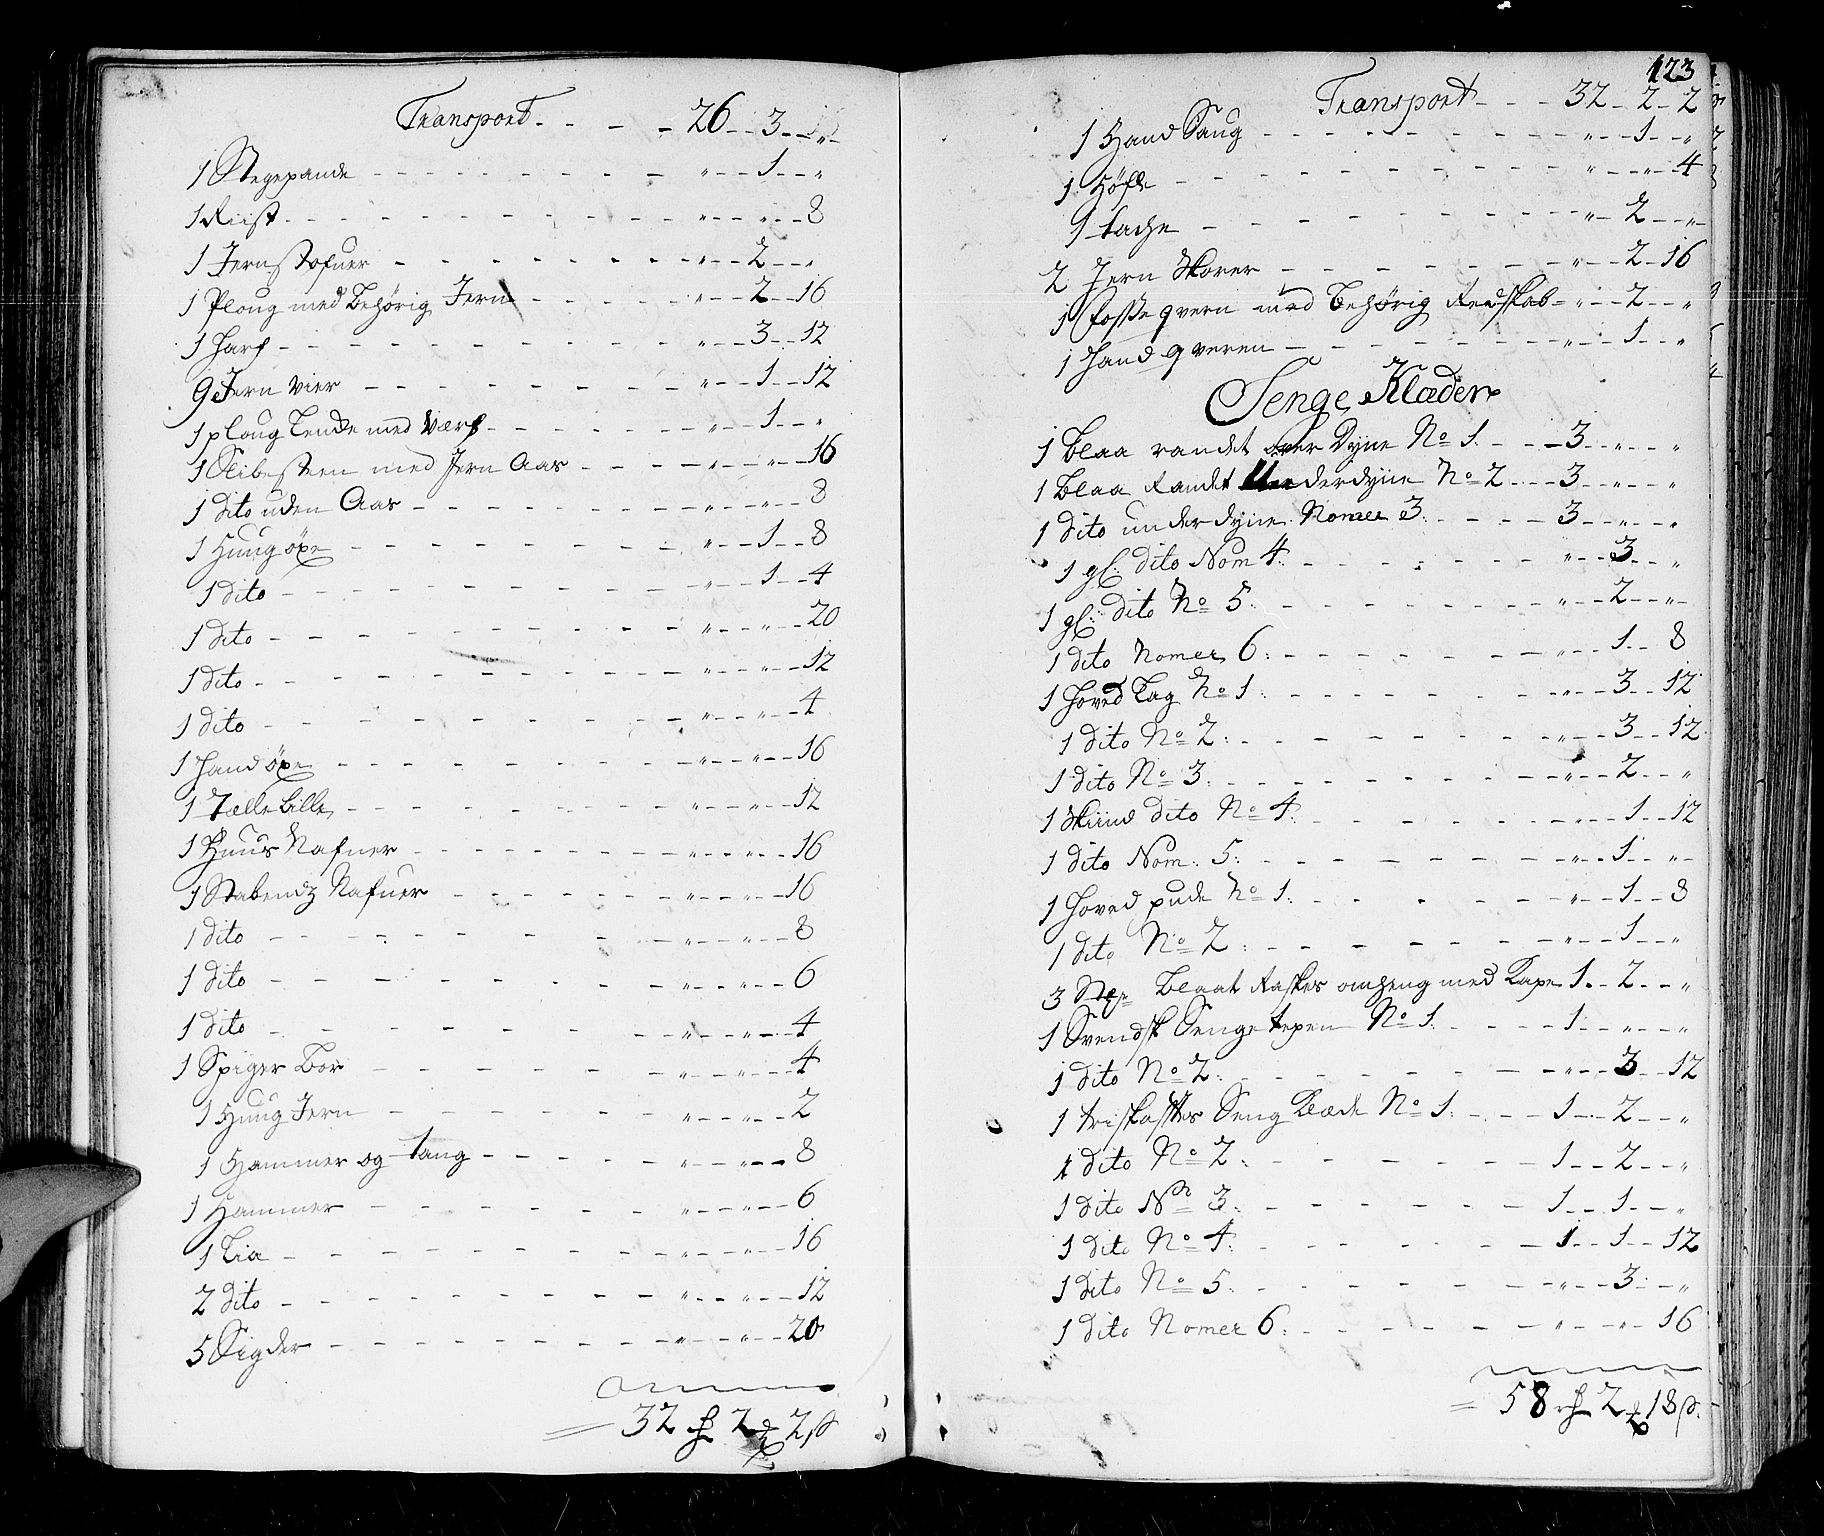 Transport - - - - 26 - 3 -
1 Stegepande - - - „ - 1 - „
1 Riist - - - „ - „ - 8
1 Jernstofuer - - - „ - 2 - „
1 Ploug med behørig Jern - - - „ - 2 - 16
1 Harf - - - „ - 3 - 12
9 Jern Vier - - - „ - 1 - 12
1 ploug Lende med værf - - - „ - 1 - „
1 Slibesteen med Jern Aas - - - „ - „ - 16
1 dito uden Aas - - - „ - „ - 8
1 Huugöxe - - - „ - 1 - 8
1 dito - - - „ - 1 - 4
1 dito - - - „ - „ - 20
1 dito - - - „ - „ - 12
1 dito - - - „ - „ - 4
1 Handöxe - - - „ - „ - 16
1 Tællebille - - - „ - „ - 12
1 Huus Nafuer - - - „ - „ - 16
1 Stabendz Nafuer - - - „ - „ - 16
1 dito - - - „ - „ - 8
1 dito - - - „ - „ - 6
1 dito - - - „ - „ - 4
1 Spiger Bor - - - „ - „ - 4
1 Huug Jern - - - „ - „ - 2
1 Hammer og tang - - - „ - „ - 8
1 Hammer - - - „ - „ - 6
1 Lia - - - „ - „ - 16
2 dito - - - „ - „ - 12
5 Sigder - - - „ - „ - 20
= 32 rd 2 ort 2 s
123
Transport - - - 32 - 2 - 2
1 Hand Saug - - - „ - 1 - „
1 Höfle - - - „ - „ - 4
1 - - - „ - 2 - „
2 Jern Skorer - - - „ - 2 - 16
1 Fosse qvern med behørig Redskab - „ - 2 - „
1 Hand qveren - - - „ - 1 - „
Senge Klæder
1 blaa randet over Dyne No 1. - - - 3 - „ - „
1 blaa Randet Underdyne No 2 - - - 3 - „ - „
1 dito underdyne Nomer 3. - - - 3 - „ - „
1 gl: dito Nom 4. - - - „ - 3 - „
1 gl: dito No 5. - - - „ - 2 - „
1 dito Nomer 6: - - - „ - 1 - 8
1 Hoved Lag No 1: - - - „ - 3 - 12
1 dito No 2: - - - „ - 3 - 12
1 dito No 3: - - - „ - 2 - „
1 Skiind dito No 4. - - - „ - 1 - 12
1 dito Nom: 5: - - - „ - 1 - „
1 Hoved pude No 1. - - - „ - 1 - 8
1 dito No 2: - - - „ - 1 - „
3 blaat Raskes omheng med Kape 1. - 2 - „
1 Svendsk Senge tepen No 1. - - - 1 - „ - „
1 dito No 2. - - - „ - 3 - 12
1 Seng Klæde No 1. - - - 1 - 2 - „
1 dito No 2. - - - 1 - 2 - „
1 dito No 3. - - - 1 - 1 - „
1 dito No 4. - - - 1 - 1 - 12
1 dito No 5. - - - „ - 3 - „
1 dito Nomer 6: - - - „ - „ - 16
= 58 rd 2 ort 18 s.